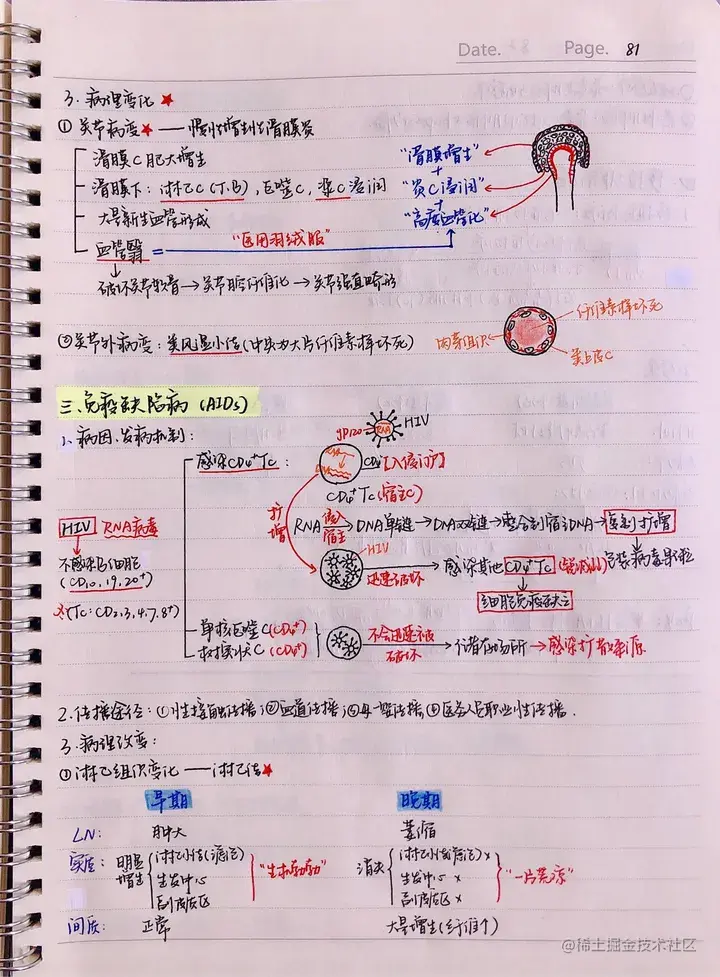 Date. Page. 81
3. 病理变化 ★
① 关节病变★ —— 慢性增生性滑膜炎
滑膜C肥大增生
滑膜下：淋巴C(T.B)，巨噬C，浆C浸润
大量新生血管形成
血管翳 = "医用羽绒服"
"滑膜增生"
+
"炎C浸润"
+
"高度血管化"
↓
破坏关节软骨→关节腔纤维化→关节强直畸形
②关节外病变：类风湿小结(中央为大片纤维素样坏死)
纤维素样坏死
肉芽组织
类上皮C
三.免疫缺陷病(AIDs)
1. 病因、发病机制：
gp120 RNA HIV
感染CD4⁺Tc： CD4【入侵门户】
CD4⁺Tc(宿主C)
扩增
HIV RNA病毒
不感染B细胞
(CD10,19,20⁺)
(Tc:CD2,3,4,7,8⁺)
RNA 侵入宿主 →DNA单链→DNA双链→整合到宿主DNA→复制扩增
HIV
迅速破坏 感染其他CD4⁺Tc 包装病毒颗粒
细胞免疫缺乏
单核巨噬C(CD4⁺)
树突状C(CD4⁺)
不会迅速被破坏 → 储存场所→感染扩散来源
2.传播途径：①性接触传播；②血道传播；③母-婴传播；④医务人员职业性传播.
3.病理改变：
①淋巴组织变化 —— 淋巴结★
早期 晚期
LN： 肿大 萎缩
实质： 明显增生 淋巴小结(滤泡) 生发中心 副皮质区 "生机勃勃" 消失 淋巴小结(滤泡)× 生发中心 × 副皮质区 × "一片荒凉"
间质： 正常 大量增生(纤维↑)
@稀土掘金技术社区